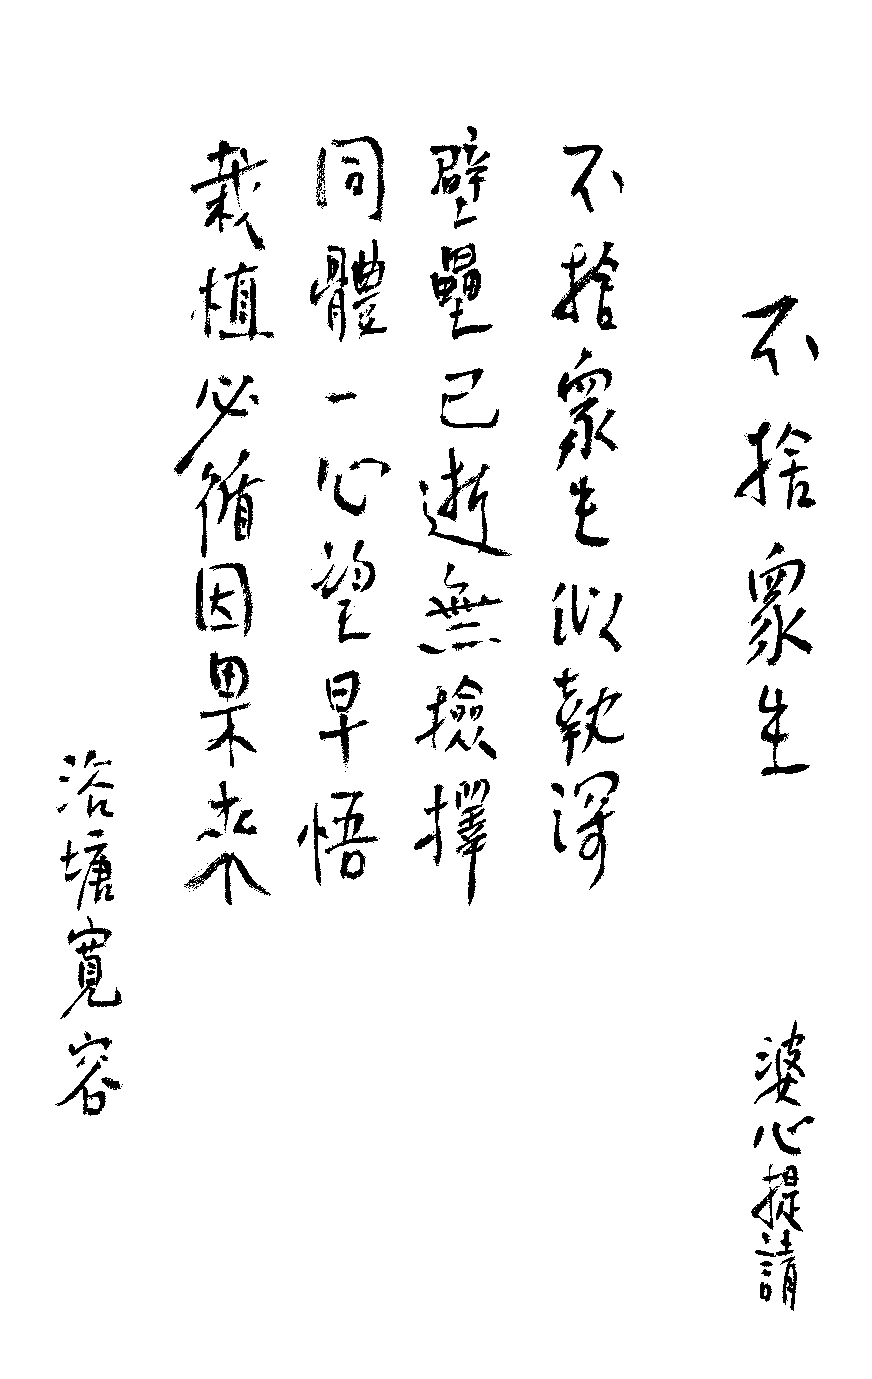 不捨衆生
婆心提請
不捨衆生似執深
壁壘已逝無撿擇
同體一心望早悟
栽植必循因果来
浴塘寬容